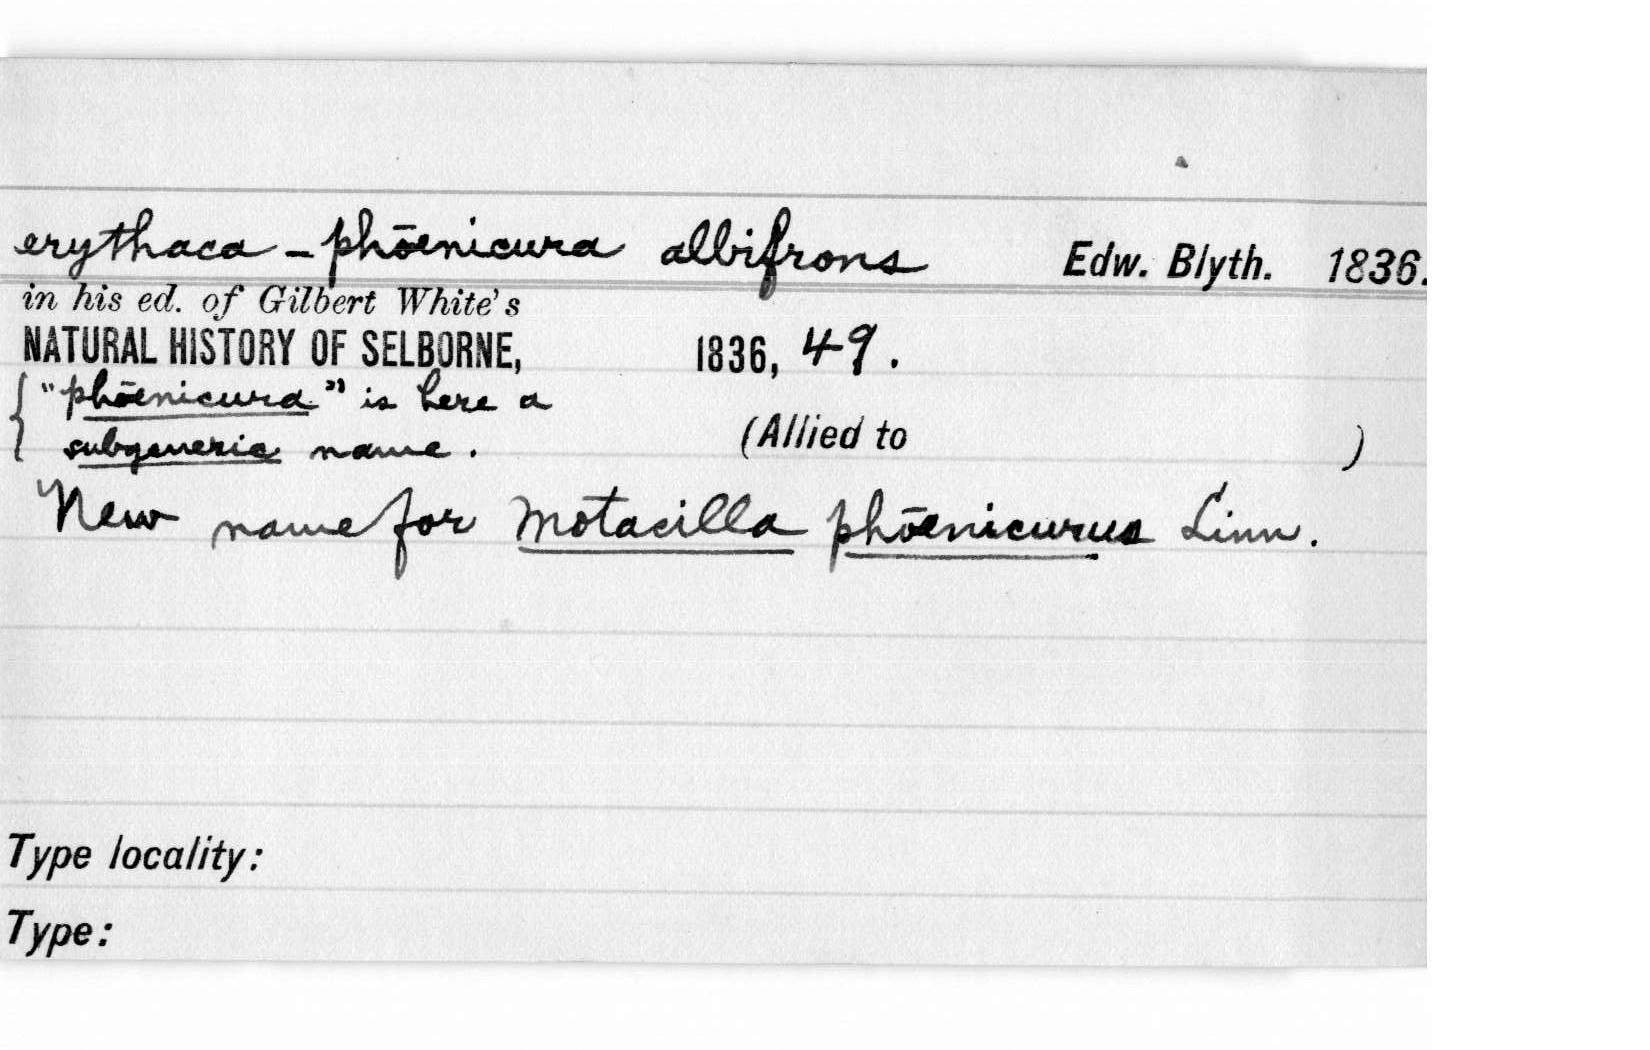 erythaca - phōenicura albifrons Edw. Blyth. 1836.
in his ed. of Gilbert White's
NATURAL HISTORY OF SELBORNE, 1836, 49.
{ "phōenicura" is here a
subgeneric name. (Allied to )
New name for Motacilla phōenicurus Linn.
Type locality:
Type: